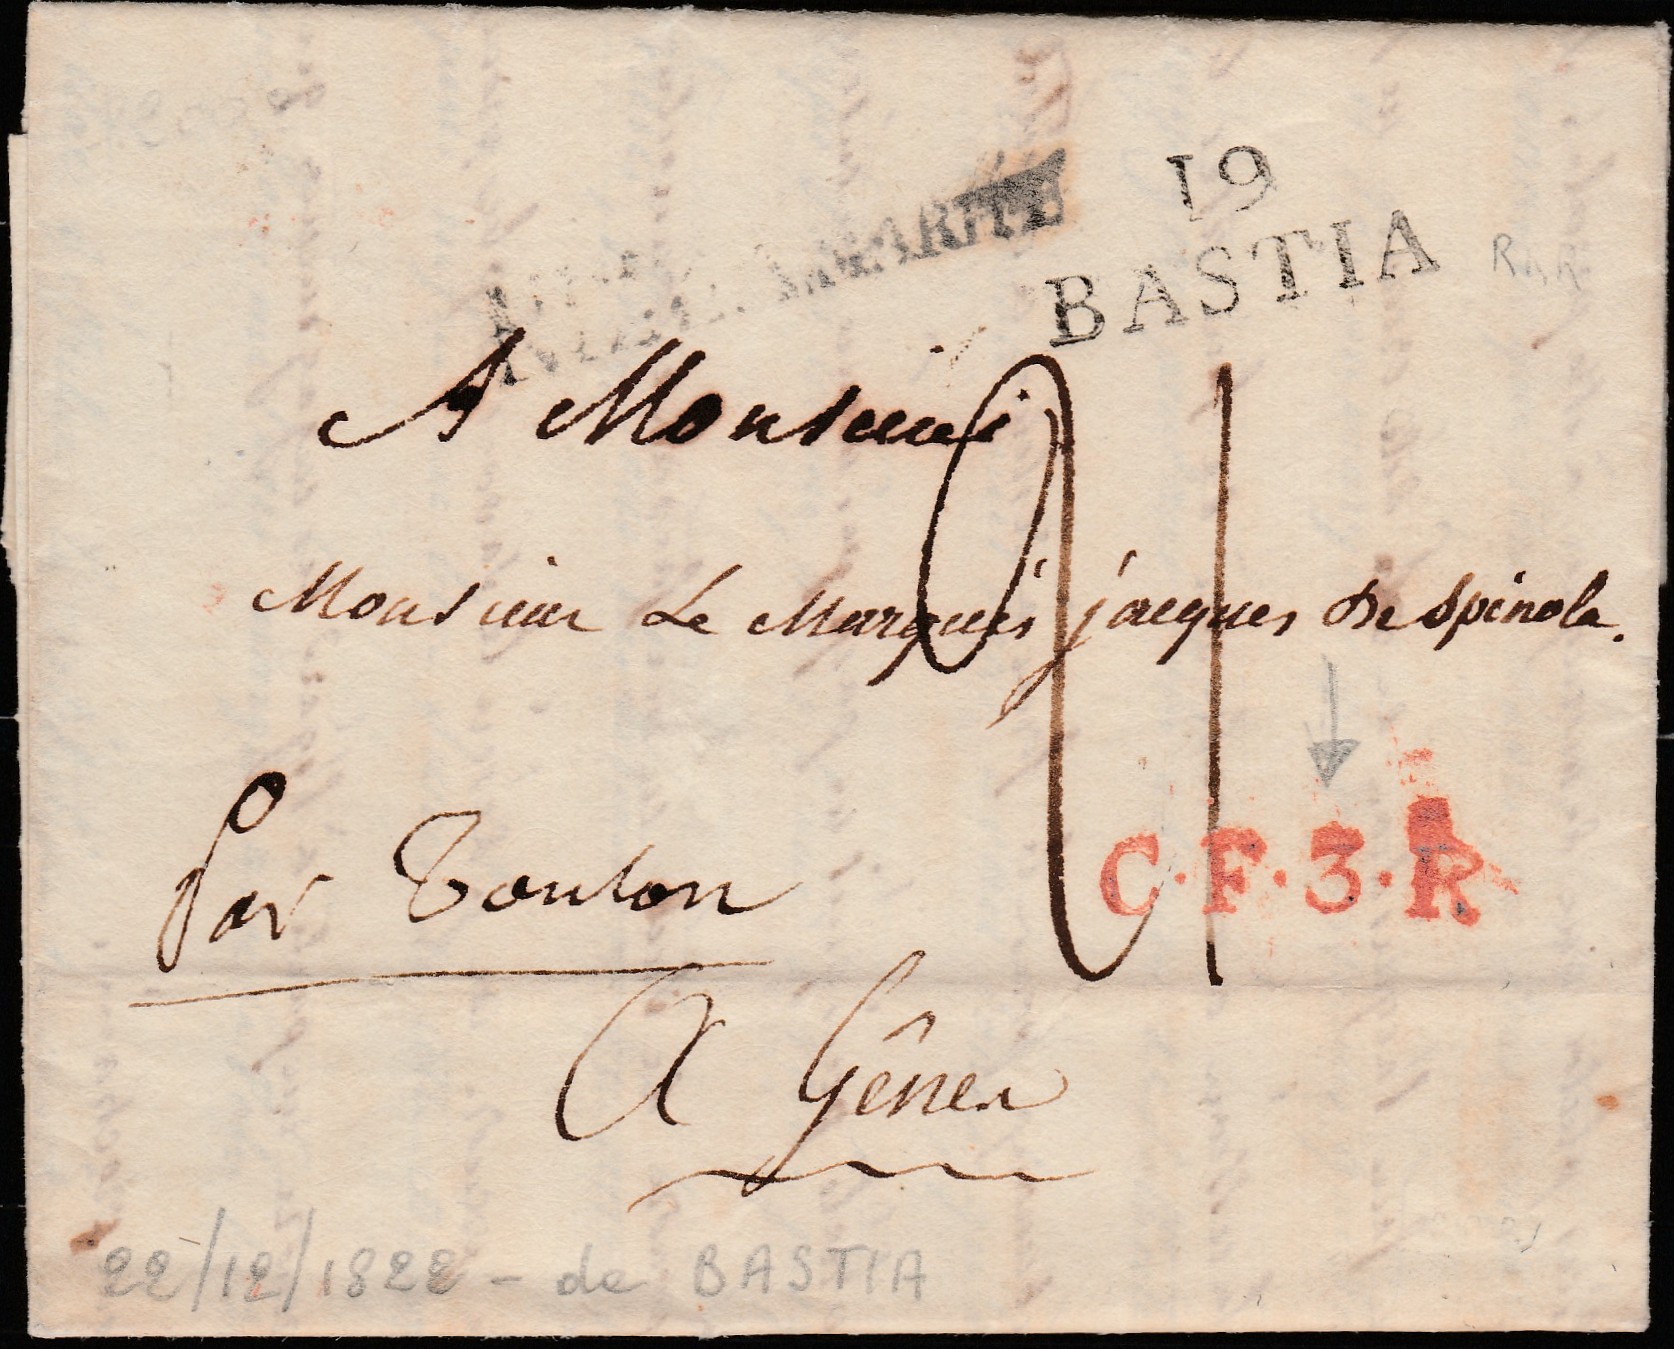 19
BASTIA
RAR
A Monsieur
Monsieur Le Marquis jacques De Spinola.
21
C·F·3·R
Par Toulon
A Gênes
22/12/1822 - de BASTIA